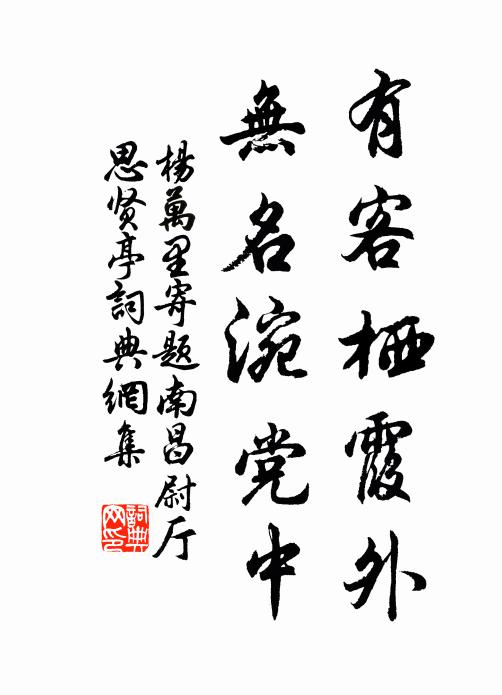 有客栖霞外
無名涴党中
楊萬里寄題南昌尉厅
思贤亭詞典網集
詞典網印